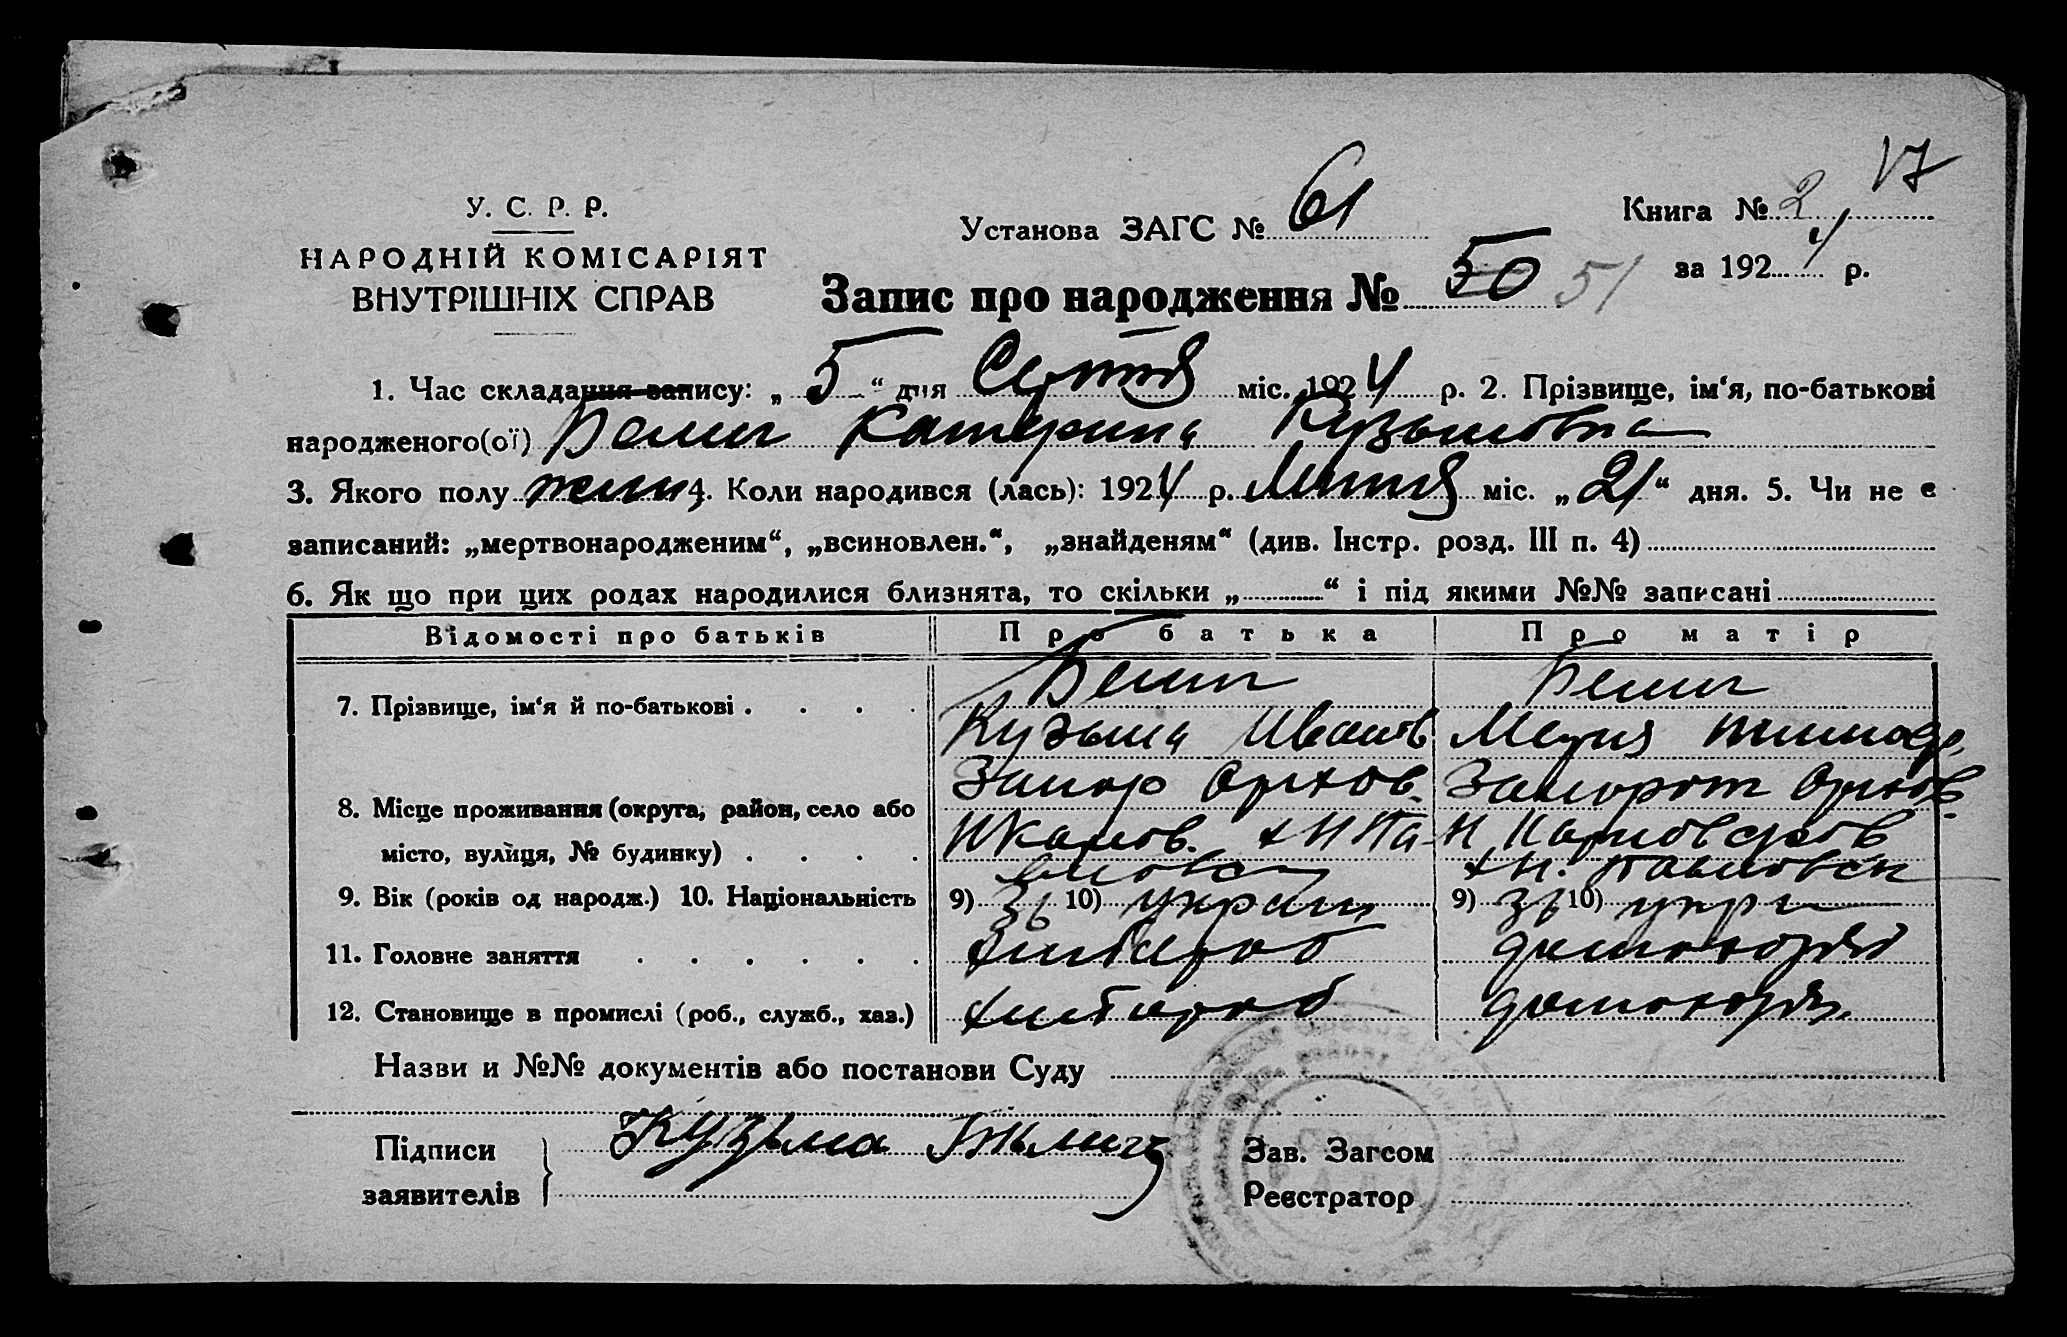 17
У. С. Р. Р.
НАРОДНІЙ КОМІСАРІЯТ
ВНУТРІШНІХ СПРАВ
Установа ЗАГС № 61
Книга № 2
за 1924 р.
Запис про народження № 50 51
1. Час складання запису: „ 5 “ дня міс. 1924 р. 2. Прізвище, ім‘я, по-батькові
народженого(ої) Катерина Кузьмовна
3. Якого полу жин 4. Коли народився (лась): 1924 р. Липня міс. „ 21 “ дня. 5. Чи не є
записаний: „мертвонародженим“, „всиновлен.“, „знайденям“ (див. Інстр. розд. III п. 4)
6. Як що при цих родах народилися близнята, то скільки „ “ і під якими №№ записані
Відомості про батьків Про батька Про матір
7. Прізвище, ім‘я й по-батькові
Кузьма Иванов Мария
8. Місце проживання (округа, район, село або
місто, вулиця, № будинку)
Запор Орехов. Запорож Орехов
9. Вік (років од народж.) 10. Національність 9) 36 10) украин 9) 36 10) укра
11. Головне заняття хлібороб домохозя
12. Становище в промислі (роб., служб., хаз.) хлібороб домохозя.
Назви и №№ документів або постанови Суду
Підписи
заявителів
Кузьма
Зав. Загсом
Реєстратор